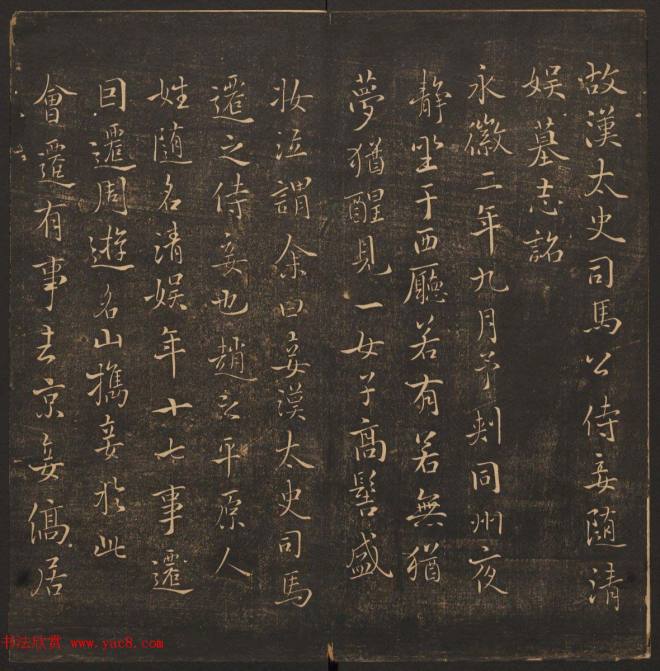 故漢太史司馬公侍妾随清
娱墓志銘
永徽二年九月予刾同州夜
静坐于西廳若有若無猶
夢猶醒見一女子高髻盛
妝泣謂余曰妾漢太史司馬
遷之侍妾也趙之平原人
姓随名清娱年十七事遷
因遷周遊名山攜妾於此
會遷有事去京妾僑居
书法欣赏 www.yac8.com